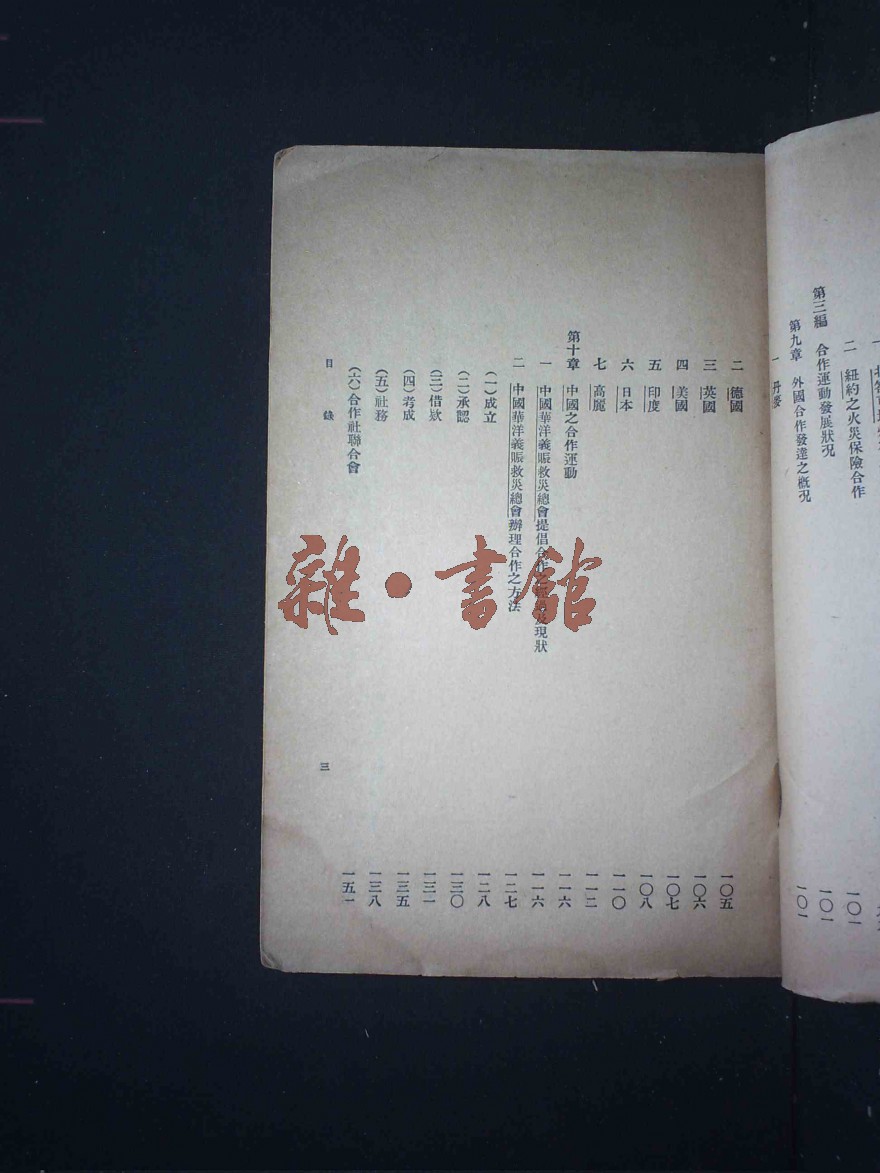 二 紐約之火災保險合作 一〇一
第三編 合作運動發展狀況 一〇一
第九章 外國合作發達之概況 一〇一
一 丹麥
二 德國 一〇五
三 英國 一〇六
四 美國 一〇七
五 印度 一〇八
六 日本 一一〇
七 高麗 一一二
第十章 中國之合作運動 一一六
一 中國華洋義賑救災總會提倡合作之 及現狀 一一六
二 中國華洋義賑救災總會辦理合作之方法 一二七
(一)成立 一二八
(二)承認 一三〇
(三)借款 一三一
(四)考成 一三五
(五)社務 一三八
(六)合作社聯合會 一五一
目錄
三
雜·書館